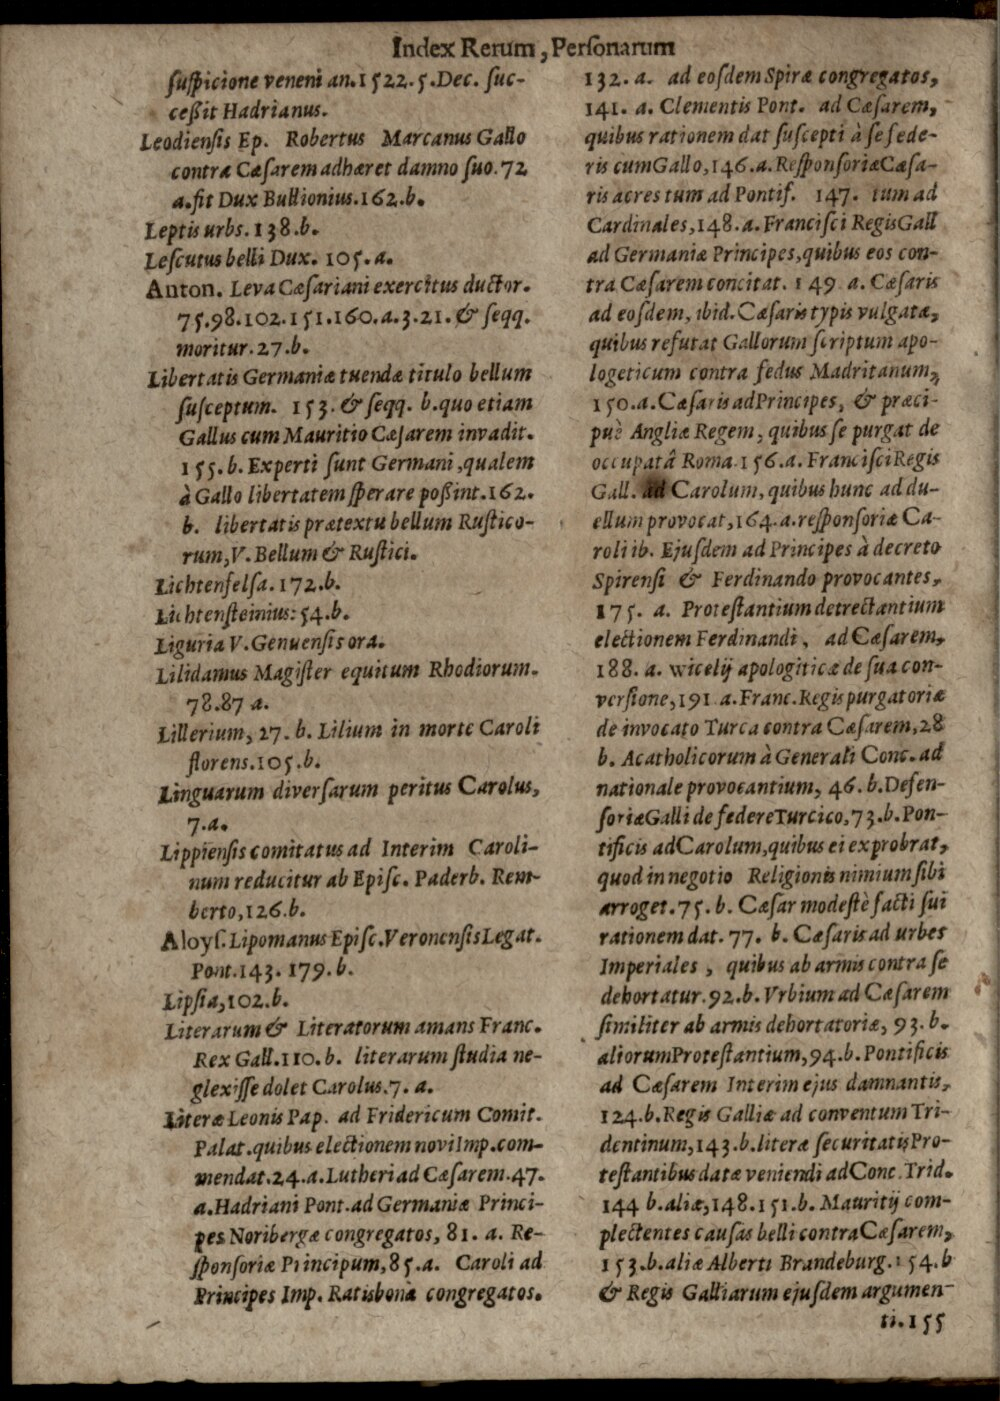 Index Rerum, Personarum
suspicione veneni an. 1522. 5. Dec. suc-
ceßit Hadrianus.
Leodiensis Ep. Robertus Marcanus Gallo
contra Cæsarem adhæret damno suo. 72
a. fit Dux Bullionius. 162. b.
Leptis urbs. 138. b.
Lescutus belli Dux. 105. a.
Anton. Leva Cæsariani exercitus ductor.
75. 98. 102. 151. 160. a. 3. 21. & seqq.
moritur. 27. b.
Libertatis Germaniæ tuendæ titulo bellum
susceptum. 153. & seqq. b. quo etiam
Gallus cum Mauritio Cæsarem invadit.
155. b. Experti sunt Germani, qualem
à Gallo libertatem sperare poßint. 162.
b. libertatis prætextu bellum Rustico-
rum, V. Bellum & Rustici.
Lichtenfelsa. 172. b.
Lichtensteinius: 54. b.
Liguria V. Genuensis ora.
Lilidamus Magister equitum Rhodiorum.
78. 87 a.
Lillerium, 27. b. Lilium in morte Caroli
florens. 105. b.
Linguarum diversarum peritus Carolus,
7. a.
Lippiensis comitatus ad Interim Caroli-
num reducitur ab Episc. Paderb. Rem-
berto, 126. b.
Aloys. Lipomanus Episc. Veronensis Legat.
Pont. 143. 179. b.
Lipsia, 102. b.
Literarum & Literatorum amans Franc.
Rex Gall. 110. b. literarum studia ne-
glexisse dolet Carolus. 7. a.
Literæ Leonis Pap. ad Fridericum Comit.
Palat. quibus electionem novi Imp. com-
mendat. 24. a. Lutheri ad Cæsarem. 47.
a. Hadriani Pont. ad Germaniæ Princi-
pes Noribergæ congregatos, 81. a. Re-
sponsoriæ Principum, 85. a. Caroli ad
Principes Imp. Ratisbonæ congregatos.
132. a. ad eosdem Spiræ congregatos,
141. a. Clementis Pont. ad Cæsarem,
quibus rationem dat suscepti à se fede-
ris cum Gallo, 146. a. Responsoriæ Cæsa-
ris acres tum ad Pontif. 147. tum ad
Cardinales, 148. a. Francisci Regis Gall
ad Germaniæ Principes, quibus eos con-
tra Cæsarem concitat. 149 a. Cæsaris
ad eosdem, ibid. Cæsaris typis vulgatæ,
quibus refutat Gallorum scriptum apo-
logeticum contra fedus Madritanum,
150. a. Cæsaris ad Principes, & præci-
puè Angliæ Regem, quibus se purgat de
occupatâ Roma. 156. a. Francisci Regis
Gall. ad Carolum, quibus hunc ad du-
ellum provocat, 164. a. responsoriæ Ca-
roli ib. Ejusdem ad Principes à decreto
Spirensi & Ferdinando provocantes,
175. a. Protestantium detrectantium
electionem Ferdinandi, ad Cæsarem,
188. a. wicelij apologiticæ de sua con-
versione, 191 a. Franc. Regis purgatoriæ
de invocato Turca contra Cæsarem, 28
b. Acatholicorum à Generali Conc. ad
nationale provocantium, 46. b. Defen-
soriæ Galli de federe Turcico, 73. b. Pon-
tificis ad Carolum, quibus ei exprobrat,
quod in negotio Religionis nimium sibi
arroget. 75. b. Cæsar modestè facti sui
rationem dat. 77. b. Cæsaris ad urbes
Imperiales, quibus ab armis contra se
dehortatur. 92. b. Vrbium ad Cæsarem
similiter ab armis dehortatoriæ, 93. b.
aliorum Protestantium, 94. b. Pontificis
ad Cæsarem Interim ejus damnantis,
124. b. Regis Galliæ ad conventum Tri-
dentinum, 143. b. literæ securitatis Pro-
testantibus datæ veniendi ad Conc. Trid.
144 b. aliæ, 148. 151. b. Mauritij com-
plectentes causas belli contra Cæsarem,
153. b. aliæ Alberti Brandeburg. 154. b
& Regis Galliarum ejusdem argumen-
ti. 155